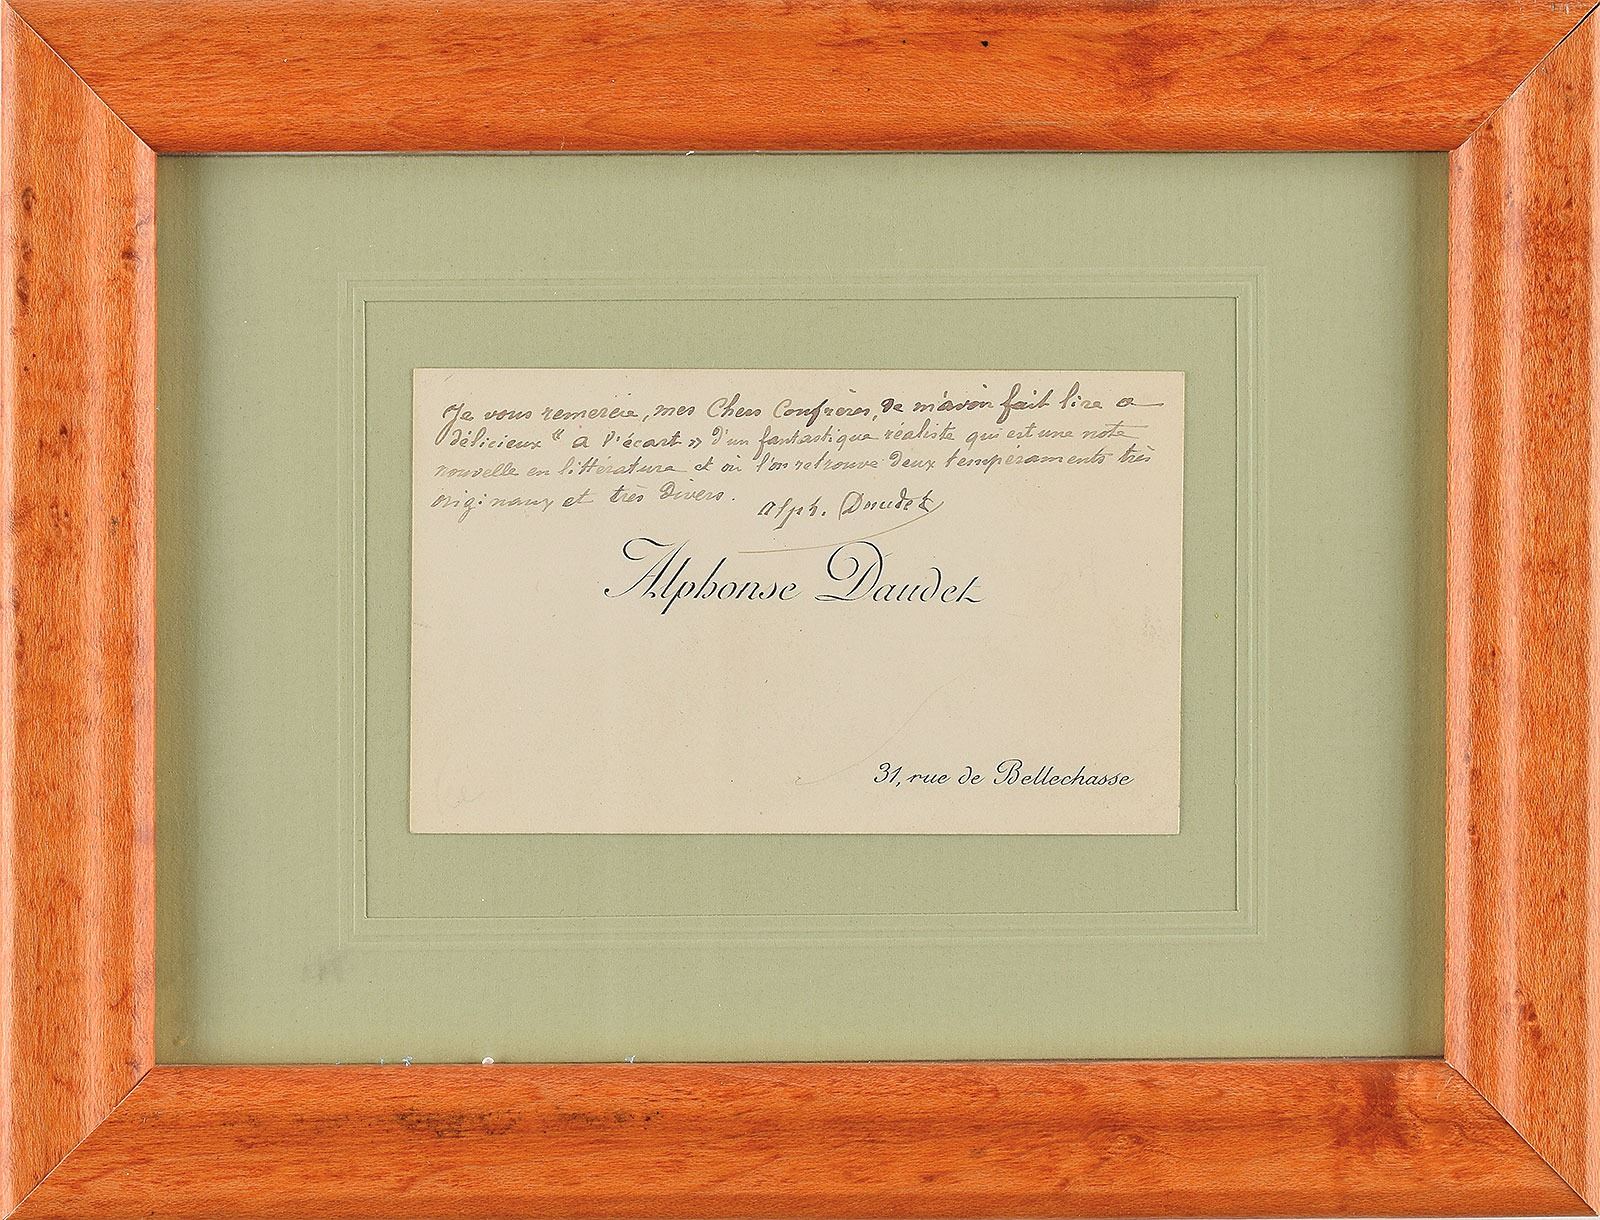 Je vous remercie, mes Chers Confrères, de m'avoir fait lire ce
délicieux " a l'écart » d'un fantastique réaliste qui est une note
nouvelle en littérature et où l'on retrouve deux tempéraments très
originaux et très divers.
Alph. Daudet
Alphonse Daudet
31, rue de Bellechasse